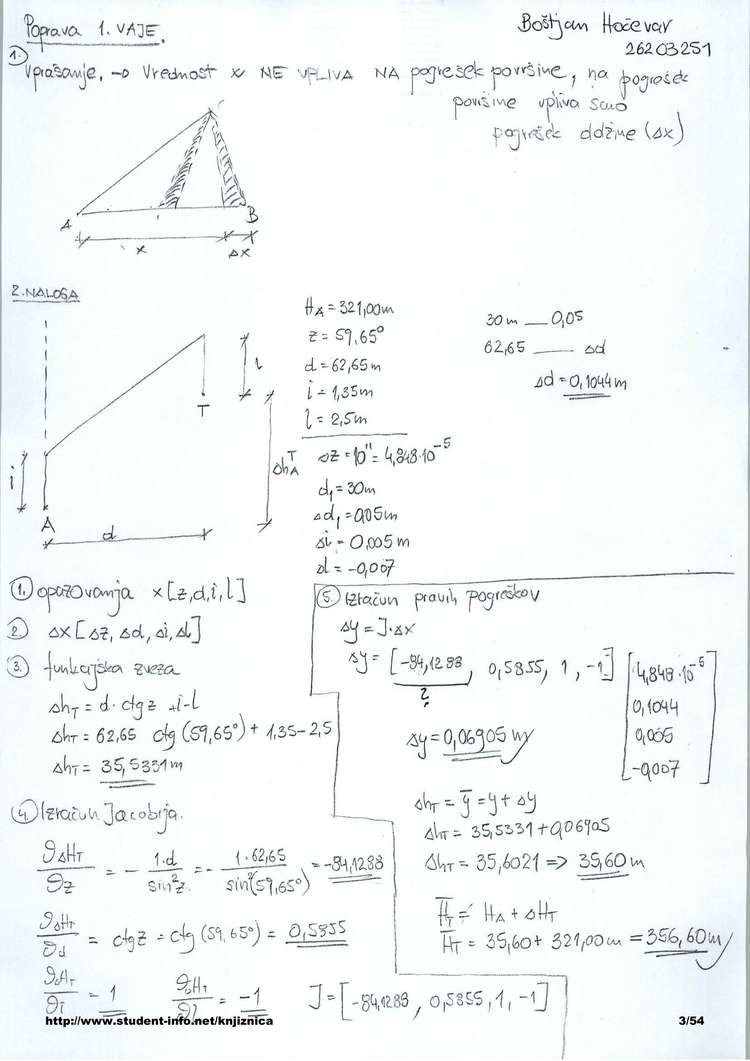 Poprava 1. VAJE.
Boštjan Hočevar
26203251
1.
Vprašanje, → Vrednost x NE VPLIVA NA pogrešek površine, na pogrešek
površine vpliva samo
pogrešek dolžine (Δx)
A
B
x
Δx
2. NALOGA
i
A
d
l
T
Δh_A^T
H_A = 321,00m
z = 59,65°
d = 62,65m
i = 1,35m
l = 2,5m
Δz = 10" = 4,848·10⁻⁵
d₁ = 30m
Δd₁ = 0,05m
Δi = 0,005m
Δl = -0,007
30m — 0,05
62,65 — Δd
Δd = 0,1044m
1. opazovanja x[z,d,i,l]
2. Δx[Δz, Δd, Δi, Δl]
3. funkcijska zveza
Δh_T = d · ctg z + i - l
Δh_T = 62,65 ctg(59,65°) + 1,35 - 2,5
Δh_T = 35,5331m
4. Izračun Jacobija.
∂ΔH_T/∂z = - 1·d/sin²z = - 1·62,65/sin²(59,65°) = -84,1288
∂ΔH_T/∂d = ctg z = ctg(59,65°) = 0,5855
∂ΔH_T/∂i = 1 ∂ΔH_T/∂l = -1 J = [-84,1288, 0,5855, 1, -1]
5. Izračun pravih pogreškov
Δy = J·Δx
Δy = [-84,1288, 0,5855, 1, -1] [4,848·10⁻⁵
?
0,1044
0,005
-0,007]
Δy = 0,06905 m
Δh_T = ȳ = y + Δy
Δh_T = 35,5331 + 0,06905
Δh_T = 35,6021 => 35,60m
H̄_T = H_A + ΔH_T
H̄_T = 35,60 + 321,00m = 356,60m
http://www.student-info.net/knjiznica
3/54